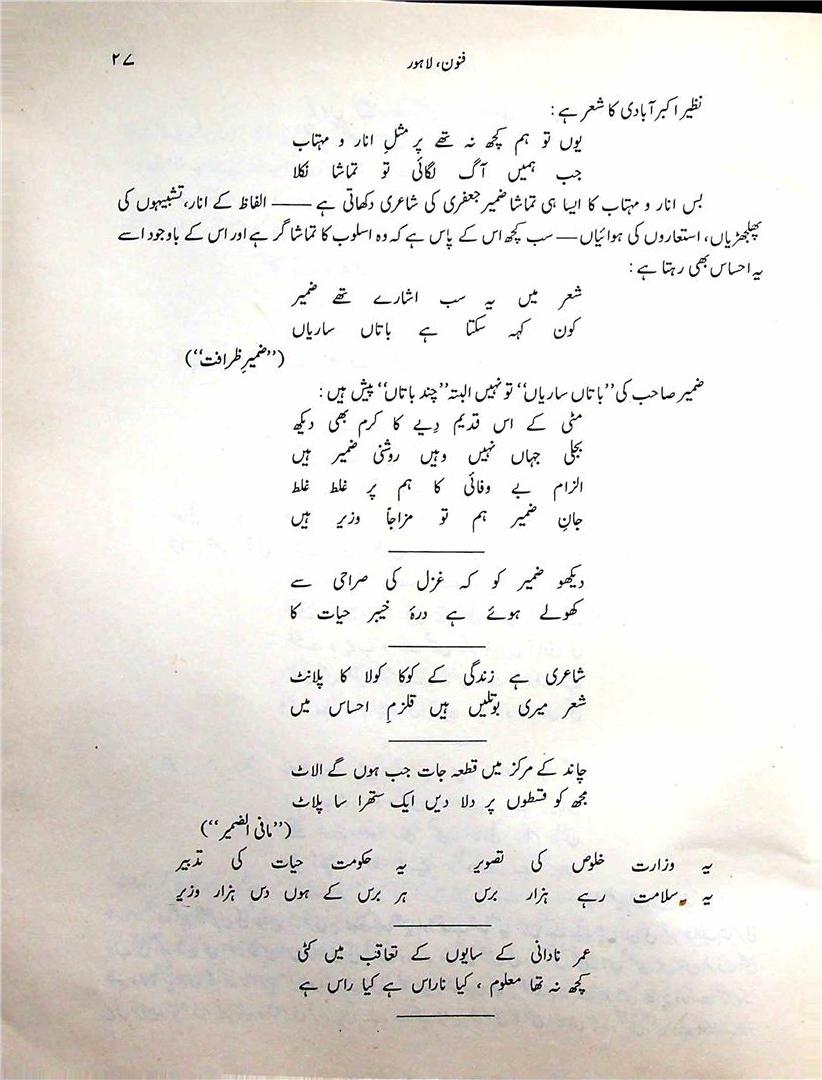 فنون، لاہور
۲۷
نظیر اکبر آبادی کا شعر ہے:
یوں تو ہم کچھ نہ تھے پر مثلِ انار و مہتاب
جب ہمیں آگ لگائی تو تماشا نکلا
بس انار و مہتاب کا ایسا ہی تماشا ضمیر جعفری کی شاعری دکھاتی ہے —— الفاظ کے انار، تشبیہوں کی
پھلجھڑیاں، استعاروں کی ہوائیاں — سب کچھ اس کے پاس ہے کہ وہ اسلوب کا تماشا گر ہے اور اس کے باوجود اسے
یہ احساس بھی رہتا ہے:
شعر میں یہ سب اشارے تھے ضمیر
کون کہہ سکتا ہے باتاں ساریاں
(''ضمیرِ ظرافت'')
ضمیر صاحب کی ''باتاں ساریاں'' تو نہیں البتہ ''چند باتاں'' پیش ہیں:
مٹی کے اس قدیم دِیے کا کرم بھی دیکھ
بجلی جہاں نہیں وہیں روشنی ضمیر ہیں
الزام بے وفائی کا ہم پر غلط غلط
جانِ ضمیر ہم تو مزاجاً وزیر ہیں
دیکھو ضمیر کو کہ غزل کی صراحی سے
کھولے ہوئے ہے درۂ خیبر حیات کا
شاعری ہے زندگی کے کوکا کولا کا پلانٹ
شعر میری بوتلیں ہیں قلزمِ احساس میں
چاند کے مرکز میں قطعہ جات جب ہوں گے الاٹ
مجھ کو قسطوں پر دلا دیں ایک ستھرا سا پلاٹ
(''مافی الضمیر'')
یہ وزارت خلوص کی تصویر یہ حکومت حیات کی تدبیر
یہ سلامت رہے ہزار برس ہر برس کے ہوں دس ہزار وزیر
عمر نادانی کے سایوں کے تعاقب میں کٹی
کچھ نہ تھا معلوم، کیا ناراس ہے کیا راس ہے